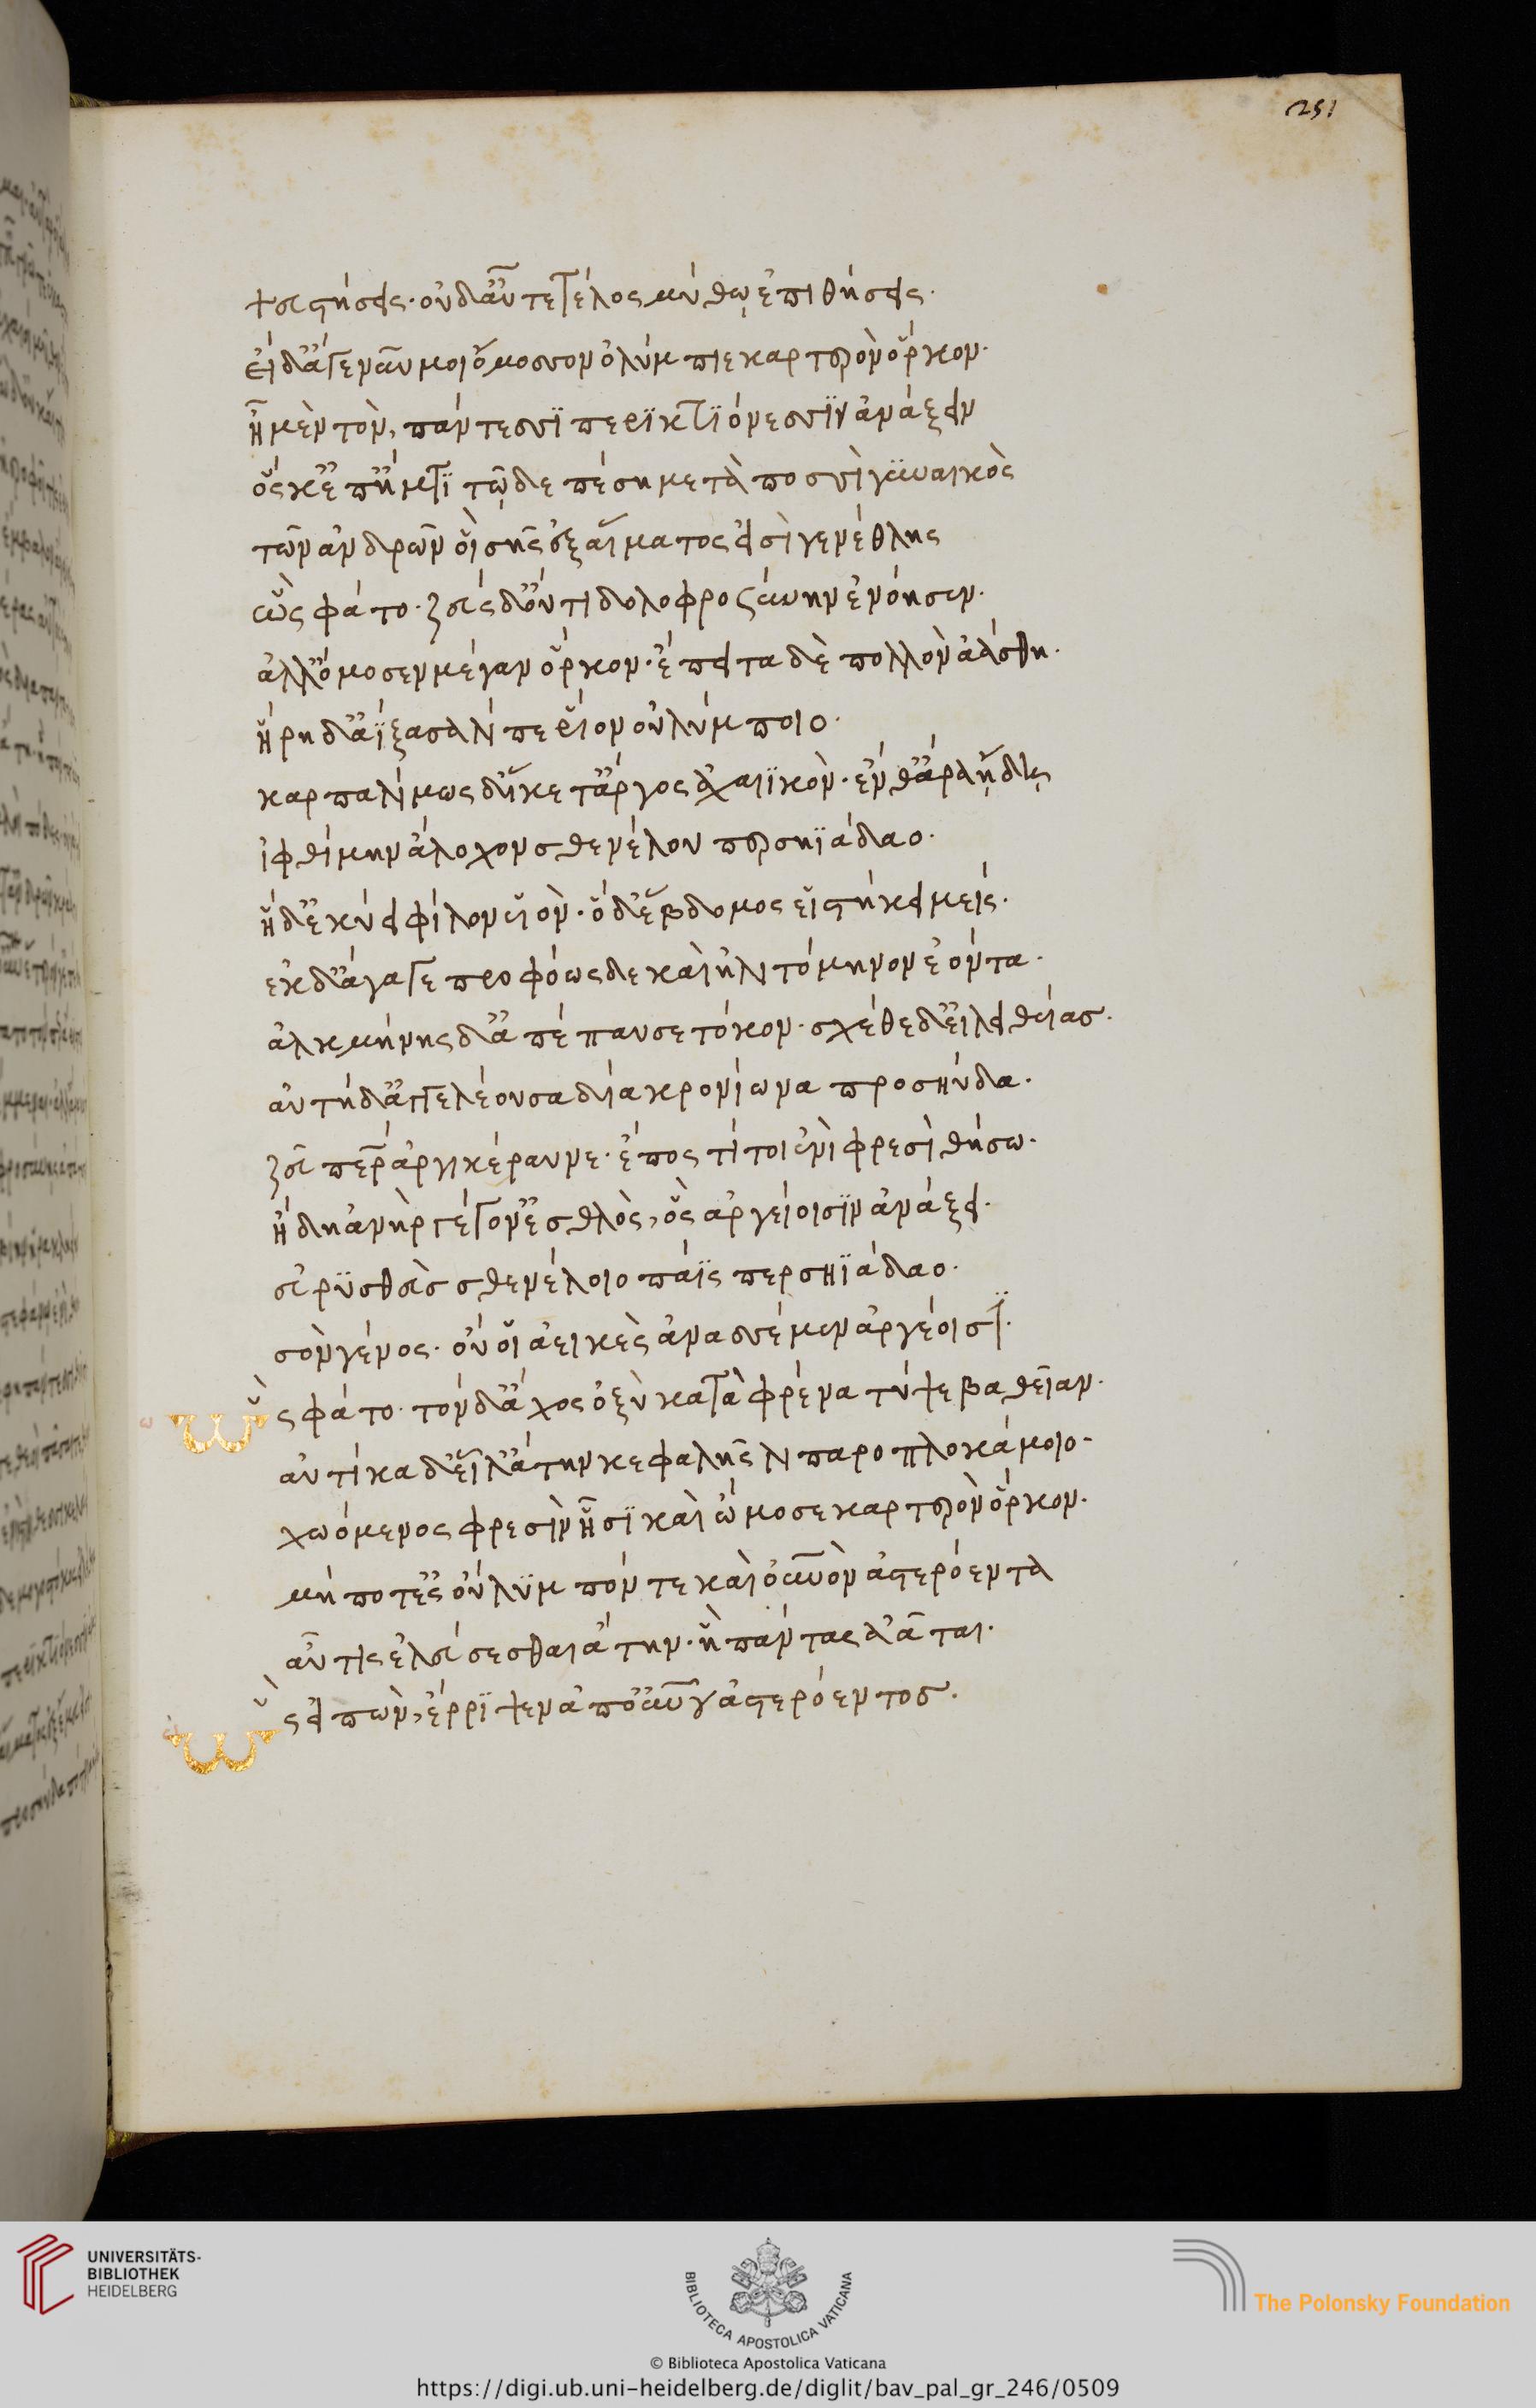 251
ψευστήσεις· οὐδ' αὖτε τέλος μύθῳ ἐπιθήσεις·
εἰ δ' ἄγε νῦν μοι ὄμοσσον ὀλύμπιε καρτερὸν ὅρκον·
ἦ μὲν τὸν, πάντεσσϊ περϊκτϊόνεσσϊν ἀνάξειν
ὅς κ' ἐπ' ἤματϊ τῷδε πέσῃ μετὰ ποσσὶ γϋναικὸς
τῶν ἀνδρῶν οἳ σῆς ἐξ αἵματος εἰσὶ γενέθλης
ὣς φάτο· ζεὺς δ' οὔτι δολοφροσύνην ἐνόησεν·
ἀλλ' ὄμοσεν μέγαν ὅρκον· ἔπειτα δὲ πολλὸν ἀάσθη·
ἥρη δ' ἀΐξασα λίπε ῥίον οὐλύμποιο·
καρπαλίμως δ' ἵκετ' ἄργος ἀχαιϊκὸν· ἔνθ' ἄρα ᾔδη
ἰφθίμην ἄλοχον σθενέλου περσηϊάδαο·
ἣ δ' ἐκύει φίλον υἱὸν· ὁ δ' ἕβδομος εἱστήκει μείς·
ἐκ δ' ἄγαγε προφόωσδε καὶ ἠλιτόμηνον ἐόντα·
ἀλκμήνης δ' ἀπέπαυσε τόκον· σχέθε δ' εἰλειθυίασ·
αὐτὴ δ' ἀγγελέουσα δία κρονίωνα προσηύδα·
ζεῦ πάτερ ἀργικέραυνε· ἔπος τί τοι ἐνὶ φρεσὶ θήσω·
ἤδη ἀνὴρ γέγον' ἐσθλὸς, ὃς ἀργείοισϊν ἀνάξει·
εὐρϋσθεὺς σθενέλοιο πάϊς περσηϊάδαο·
σὸν γένος· οὔ οἱ ἀεικὲς ἀνασσέμεν ἀργέοισϊ·
Ὣς φάτο· τὸν δ' ἄχος ὀξὺ κατὰ φρένα τύψε βαθεῖαν·
αὐτίκα δ' εἷλ' ἄτην κεφαλῆς λιπαροπλοκάμοιο·
χωόμενος φρεσὶν ᾗσϊ καὶ ὤμοσε καρτερὸν ὅρκον·
μή ποτ' ἐς οὔλϋμπόν τε καὶ οὐρανὸν ἀστερόεντα
αὖτις ἐλεύσεσθαι ἄτην· ἣ πάντας ἀᾶται·
Ὣς εἰπὼν, ἔρρϊψεν ἀπ' οὐρανοῦ ἀστερόεντοσ·
UNIVERSITÄTS-
BIBLIOTHEK
HEIDELBERG
BIBLIOTECA APOSTOLICA VATICANA
The Polonsky Foundation
© Biblioteca Apostolica Vaticana
https://digi.ub.uni-heidelberg.de/diglit/bav_pal_gr_246/0509